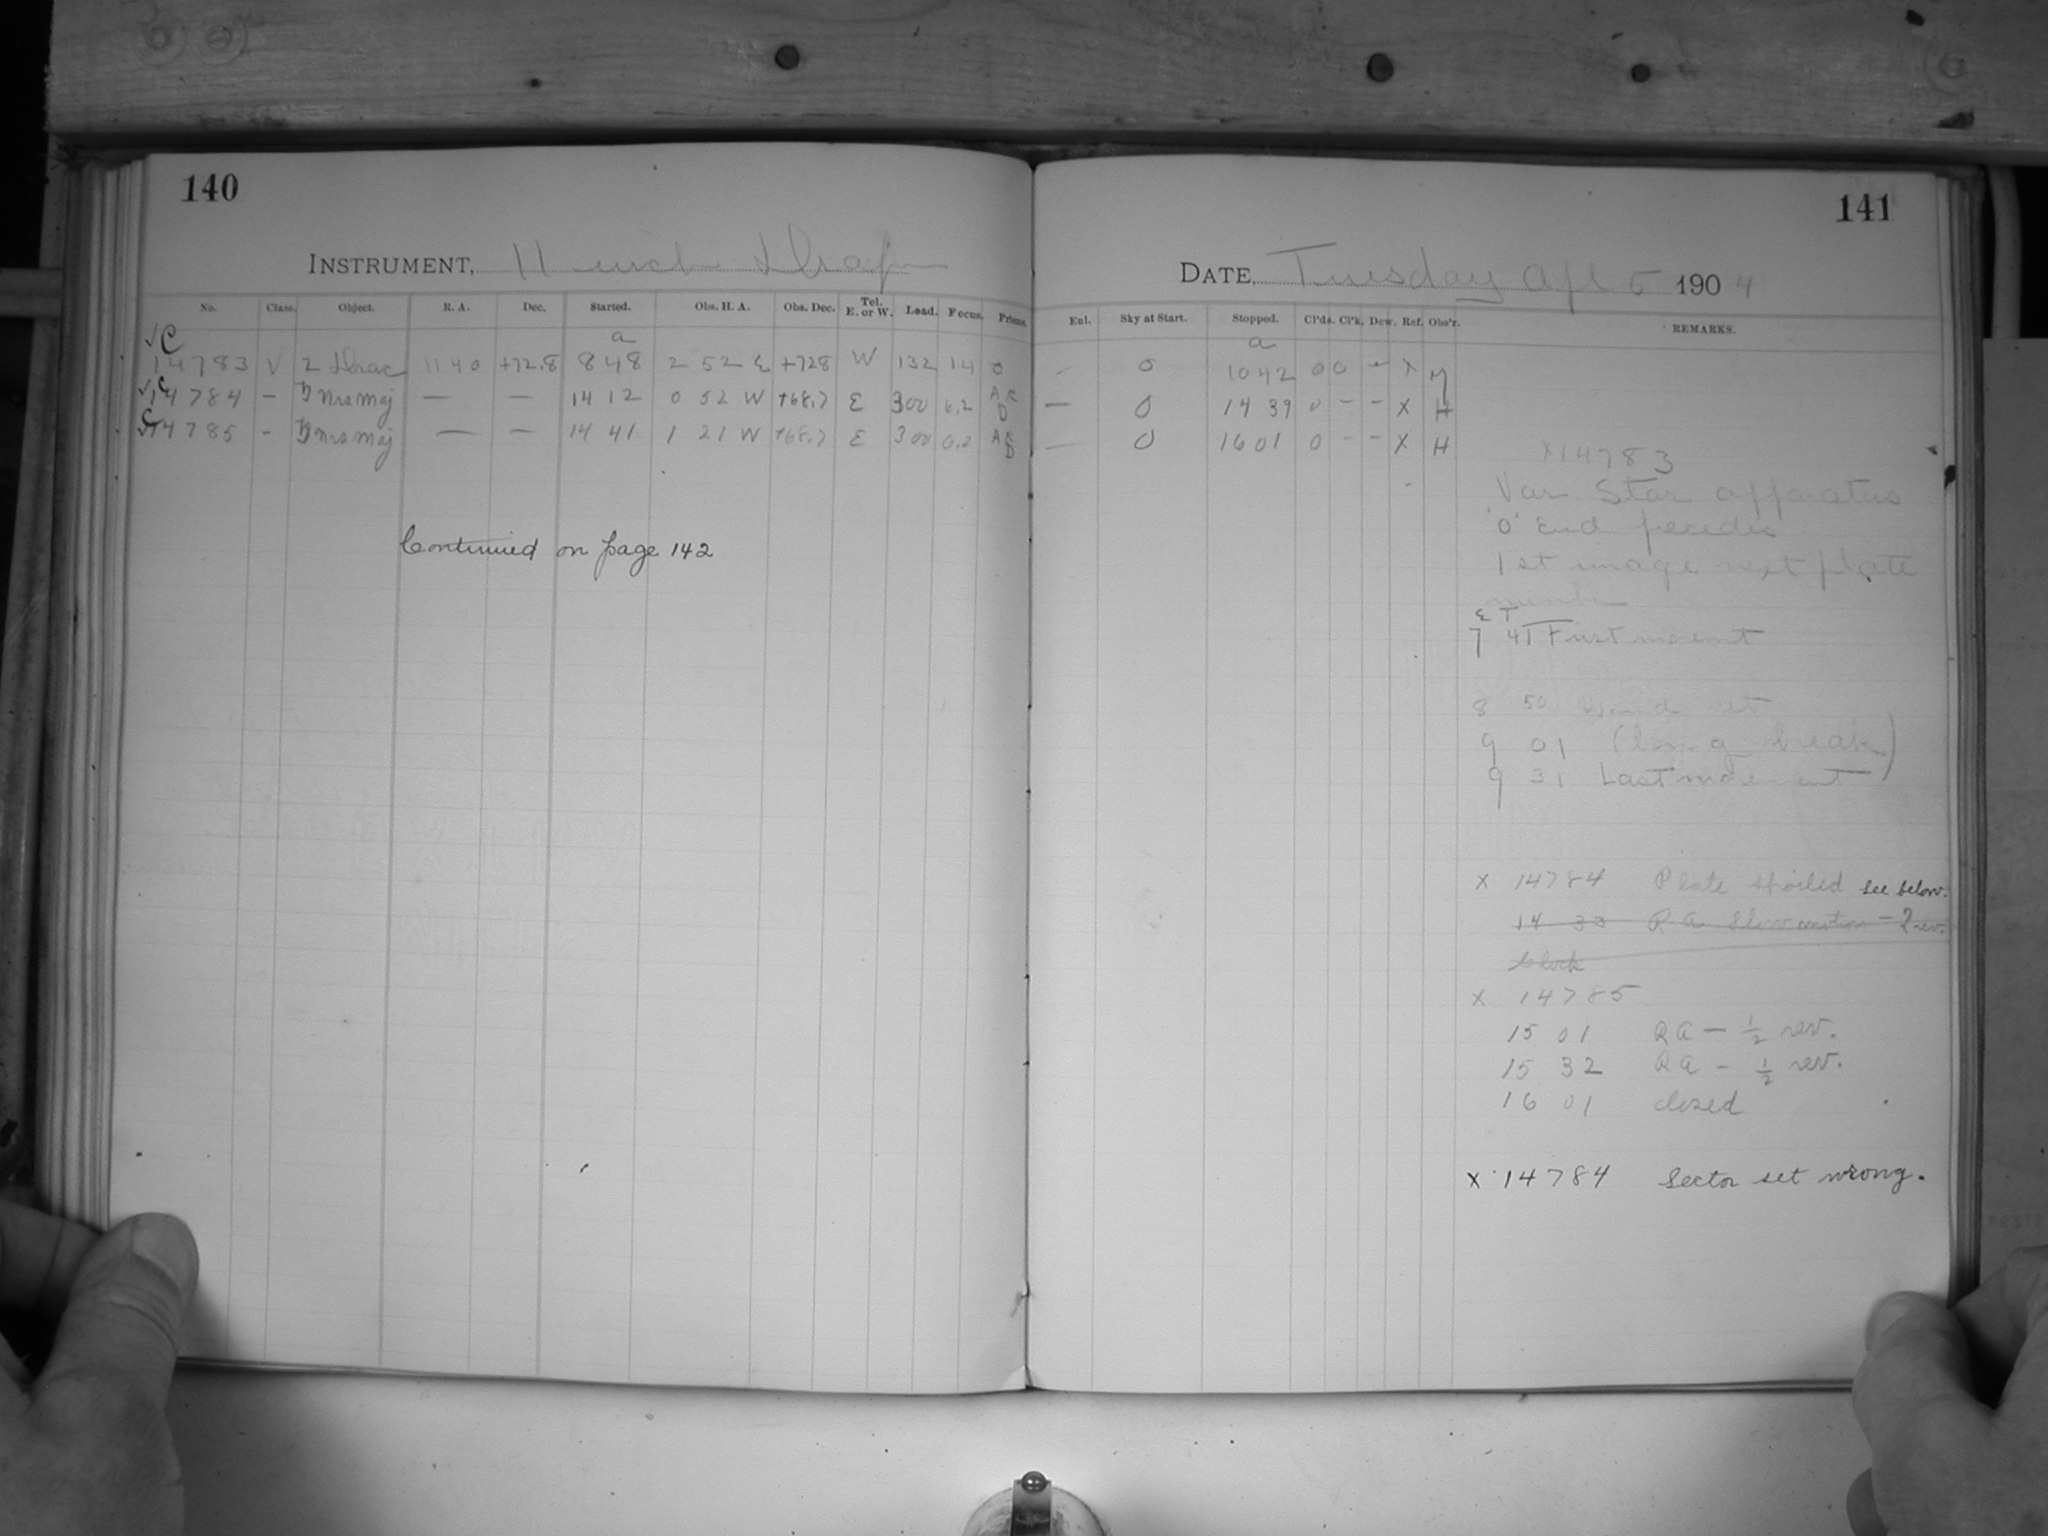 140
INSTRUMENT, 11 inch Draper
No. Class. Object. R. A. Dec. Started. Obs. H. A. Obs. Dec. Tel. E. or W. Load. Focus. Prisms.
√C a
14783 V Z Drac 11 40 +72.8 8 48 2 52 E +728 W 132 1.4 0
√C 14784 — Urs Maj — — 14 12 0 52 W +68.7 E 300 6.2 A C D
√C 14785 - Urs Maj — — 14 41 1 21 W +68.7 E 300 A C D
Continued on page 142
141
DATE, Tuesday Apl 5 1904
Enl. Sky at Start. Stopped. Cl'ds. Cl'k. Dew. Ref. Obs'r. REMARKS.
a
— 0 10 42 0 0 - X M
— 0 14 39 0 - - X H
— 0 16 01 0 - - X H
X14783
Var Star apparatus
'0' End precedes
1st image next plate
number
E T
7 41 First movement
8 50 Wind
9 01 break)
9 31 Last movement
X 14784 Plate spoiled see below.
14 33 R A Slow motion - 2 rev.
clock
X 14785
15 01 RA — 1/2 rev.
15 32 RA - 1/2 rev.
16 01 closed
X 14784 Sector set wrong.